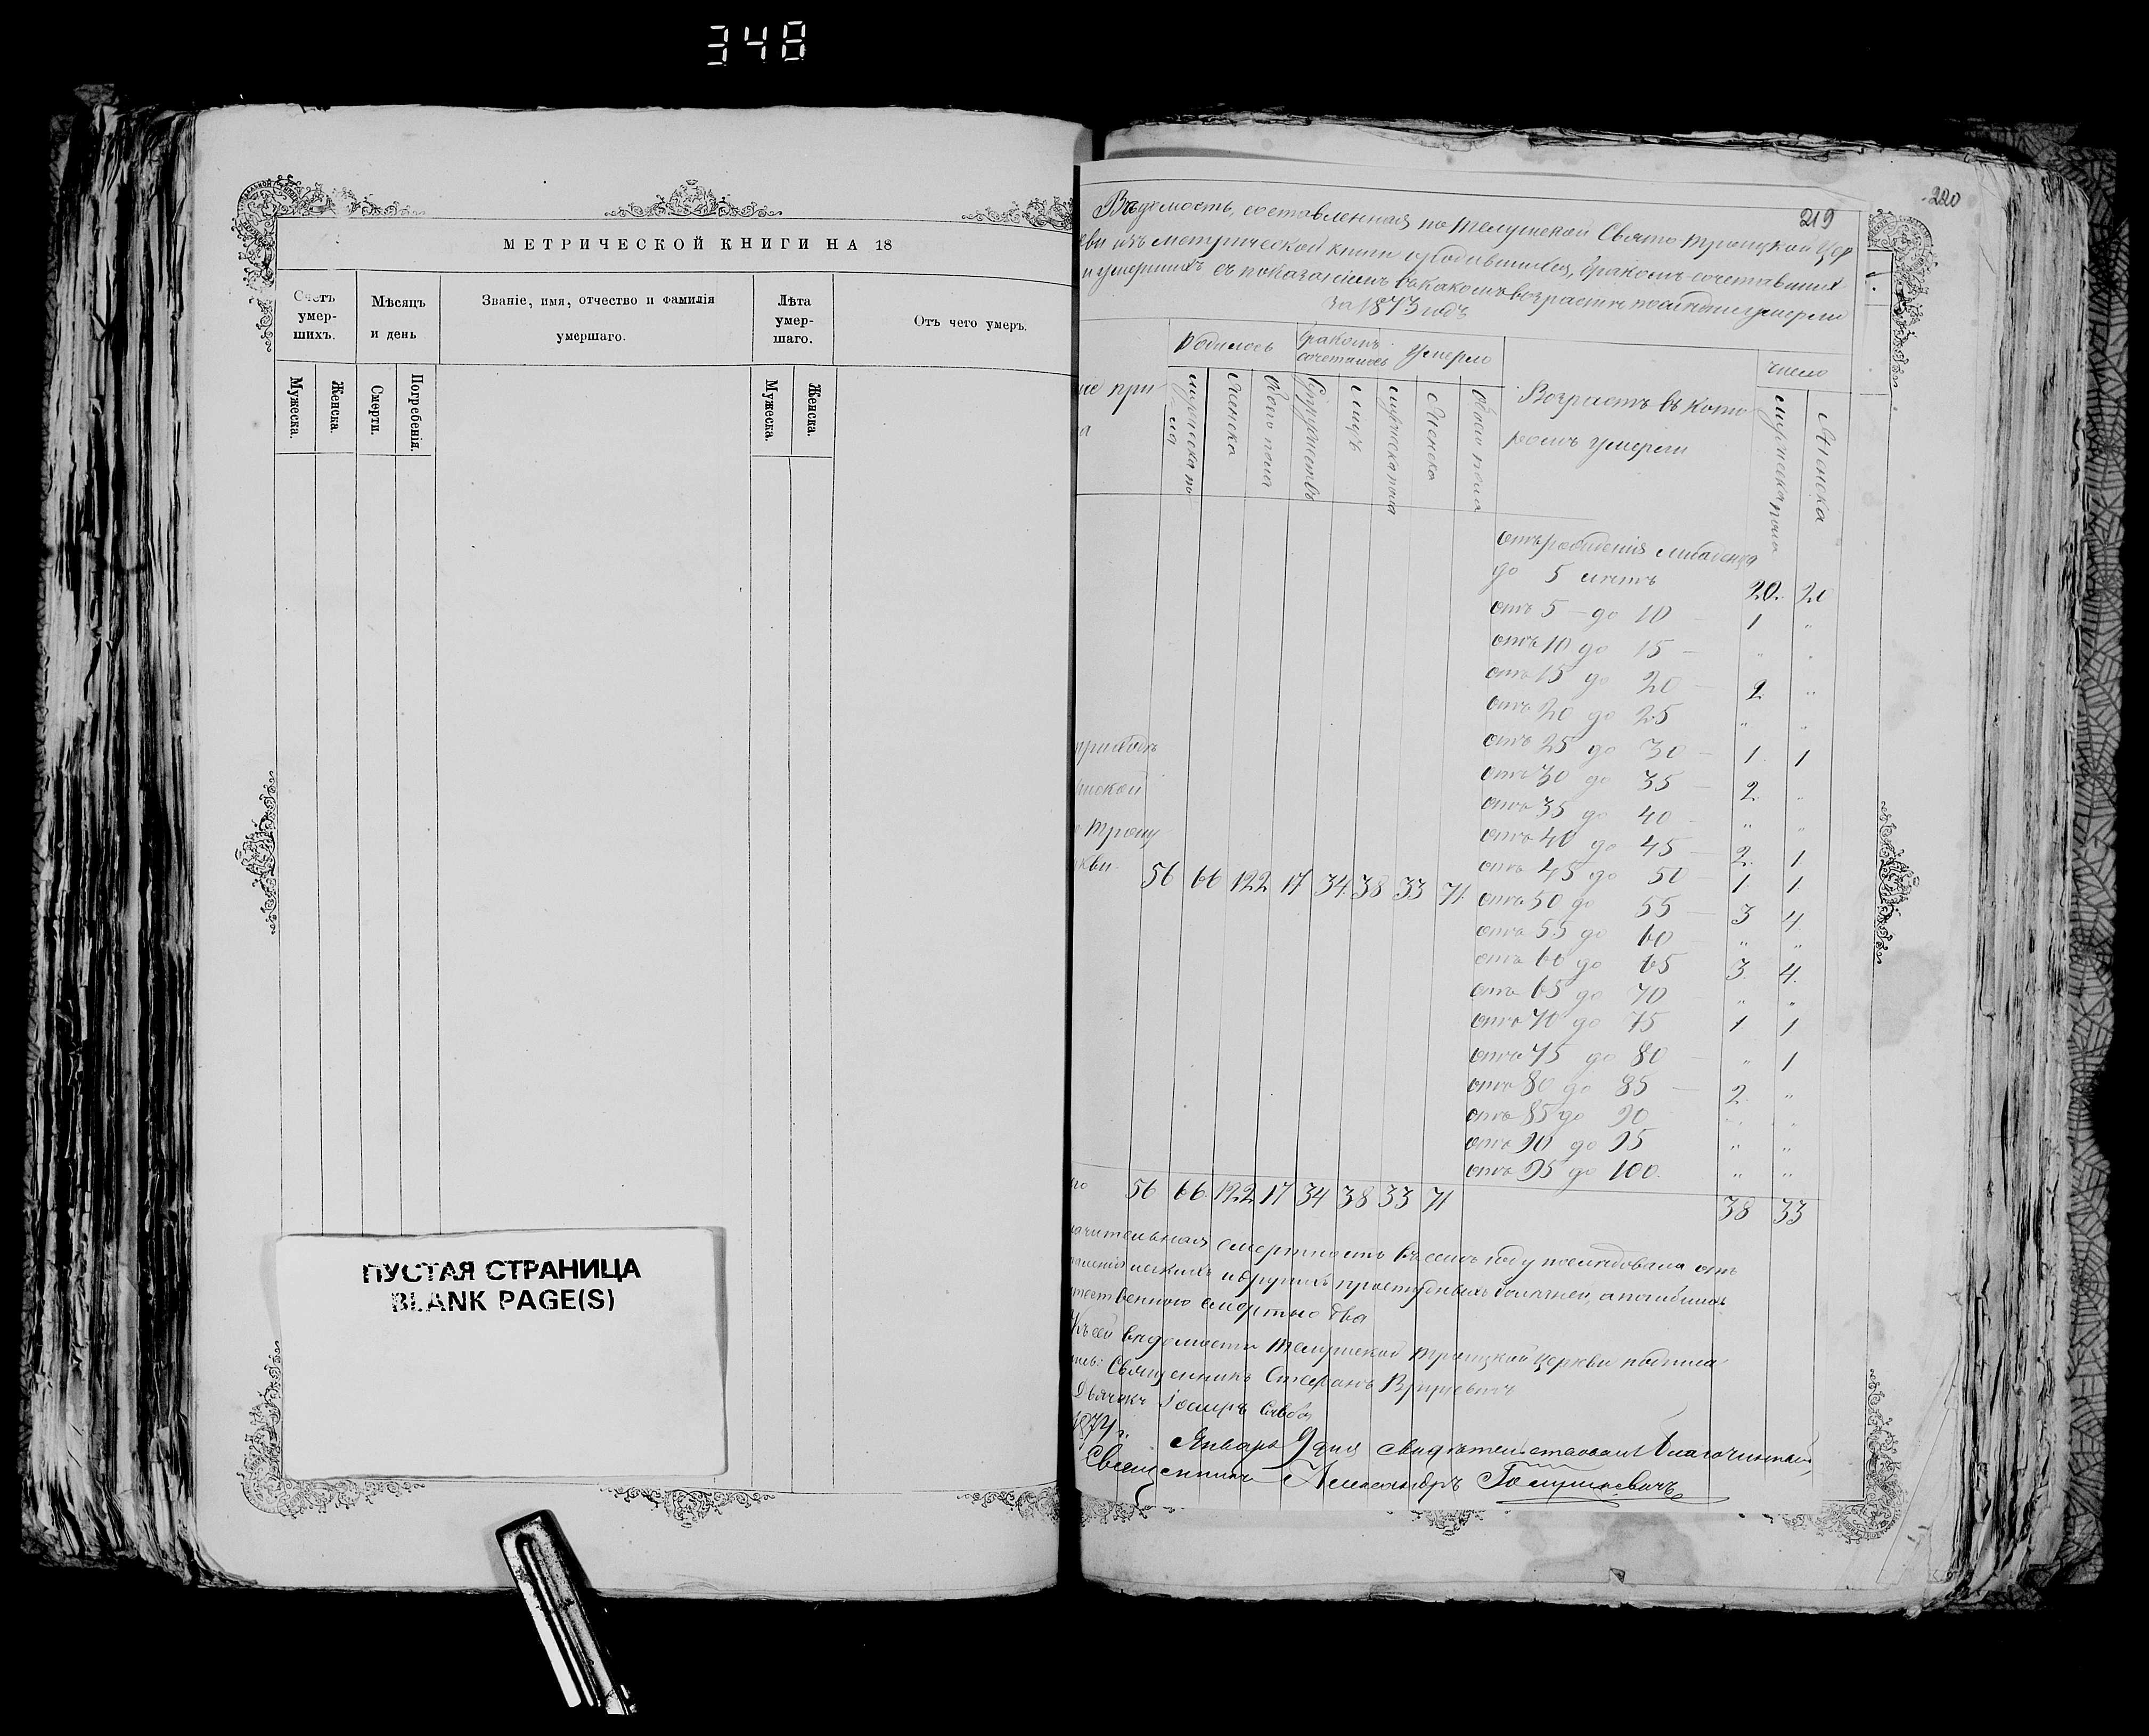 348
МЕТРИЧЕСКОЙ КНИГИ НА 18
Счетъ умер- шихъ.
Мѣсяцъ и день
Званіе, имя, отчество и фамилія умершаго.
Лѣта умер- шаго.
Отъ чего умеръ.
Мужеска. Женска. Смерти. Погребенія. Мужеска. Женска.
ПУСТАЯ СТРАНИЦА
BLANK PAGE(S)
220
219
Вѣдомость, составленная по Телушской Свято Троицкой Цер
кви изъ метрической книги о родившихся, бракомъ сочетавшихся
и умершихъ съ показаніемъ въ какомъ возрастѣ последніе умерли
за 1873 годъ
Родилось бракомъ сочеталось Умерло
Возрастъ въ кото
ромъ умерли
число
ніе при
мужеска по
ла
Женска
Обоего пола
Супружествъ
Лицъ
мужеска пола
Женска
Обоего пола
мужеска пола
Женска
отъ рожденія младенца
до 5 летъ 20. 20
отъ 5 – до 10 – 1 "
отъ 10 до 15 – " "
отъ 15 до 20 – 2 "
отъ 20 до 25 " "
отъ 25 до 30 – 1. 1
отъ 30 до 35 – 2. "
отъ 35 до 40 – " "
отъ 40 до 45 – 2. 1
отъ 45 до 50 – 1 1
отъ 50 до 55 – 3 4.
отъ 55 до 60 – " "
отъ 60 до 65 3. 4.
отъ 65 до 70 – " "
отъ 70 до 75 1 1
отъ 75 до 80 – " 1
отъ 80 до 85 – 2. "
отъ 85 до 90 " "
отъ 90 до 95 " "
отъ 95 до 100. " "
приходъ
Троиц
кви. 56 66 122 17 34 38 33 71.
го 56 66. 122 17 34 38 33 71 38 33
начительная смертность въ семъ году последовала отъ
легкихъ и другихъ простудныхъ болезней, а погибшихъ
ественною смертью два
Къ сей ведомости Телушской Троицкой церкви подписа
лись: Священникъ Стефанъ
Дьячокъ
1874 г.
Января 9 дня свидѣтельствовалъ Благочинный,
Священникъ Александръ